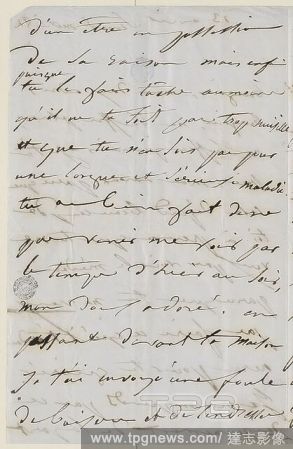 d'un être en possession
de sa raison mais enfin
puisque
tu le fais tâche au moins
qu'il ne te soit pas trop nuisible
et que tu n'en sois pas pour
une longue et sérieuse maladie.
tu as bien fait de ne
pas venir me voir par
le temps d'hier au soir,
mon Toto adoré. en
passant devant ta maison
je t'ai envoyé une foule
de baisers et de tendresses
TPG
www.tpgnews.com / 達志影像